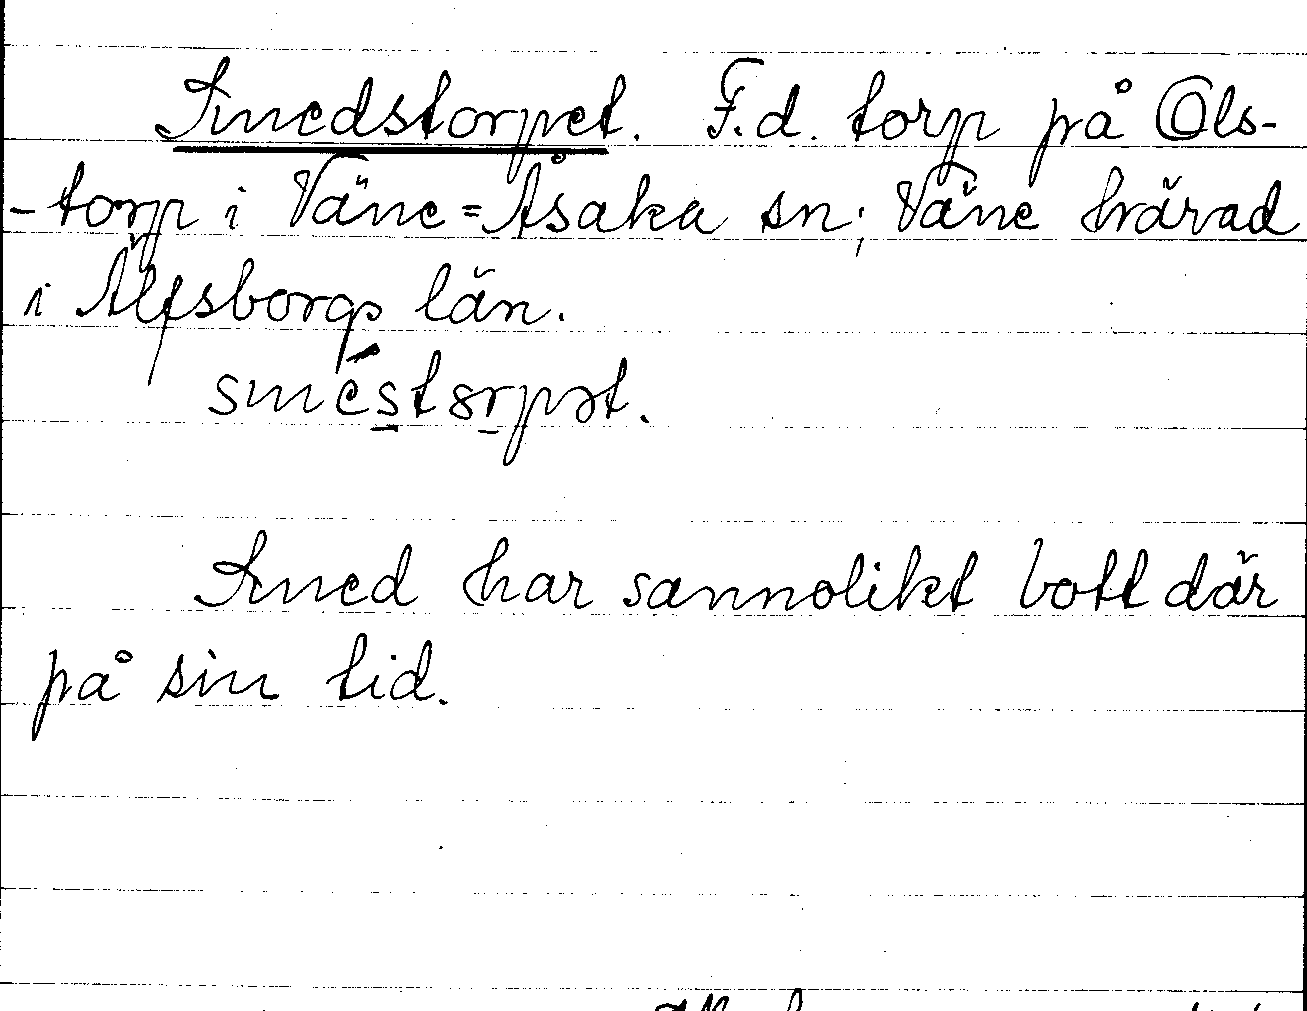 Smedstorpet. F.d. torp på Ols-
-torp i Väne=Åsaka sn; Väne härad
i Älfsborgs län.
sméstorpət.
Smed har sannolikt bott där
på sin tid.